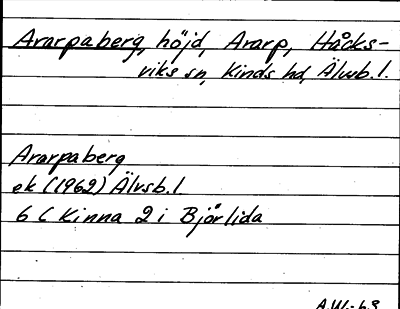 Ararpaberg, höjd, Ararp, Håcks-
viks sn, Kinds hd, Älvsb. l.
Ararpaberg
ek (1962) Älvsb. l
6 C Kinna 2 i Björlida